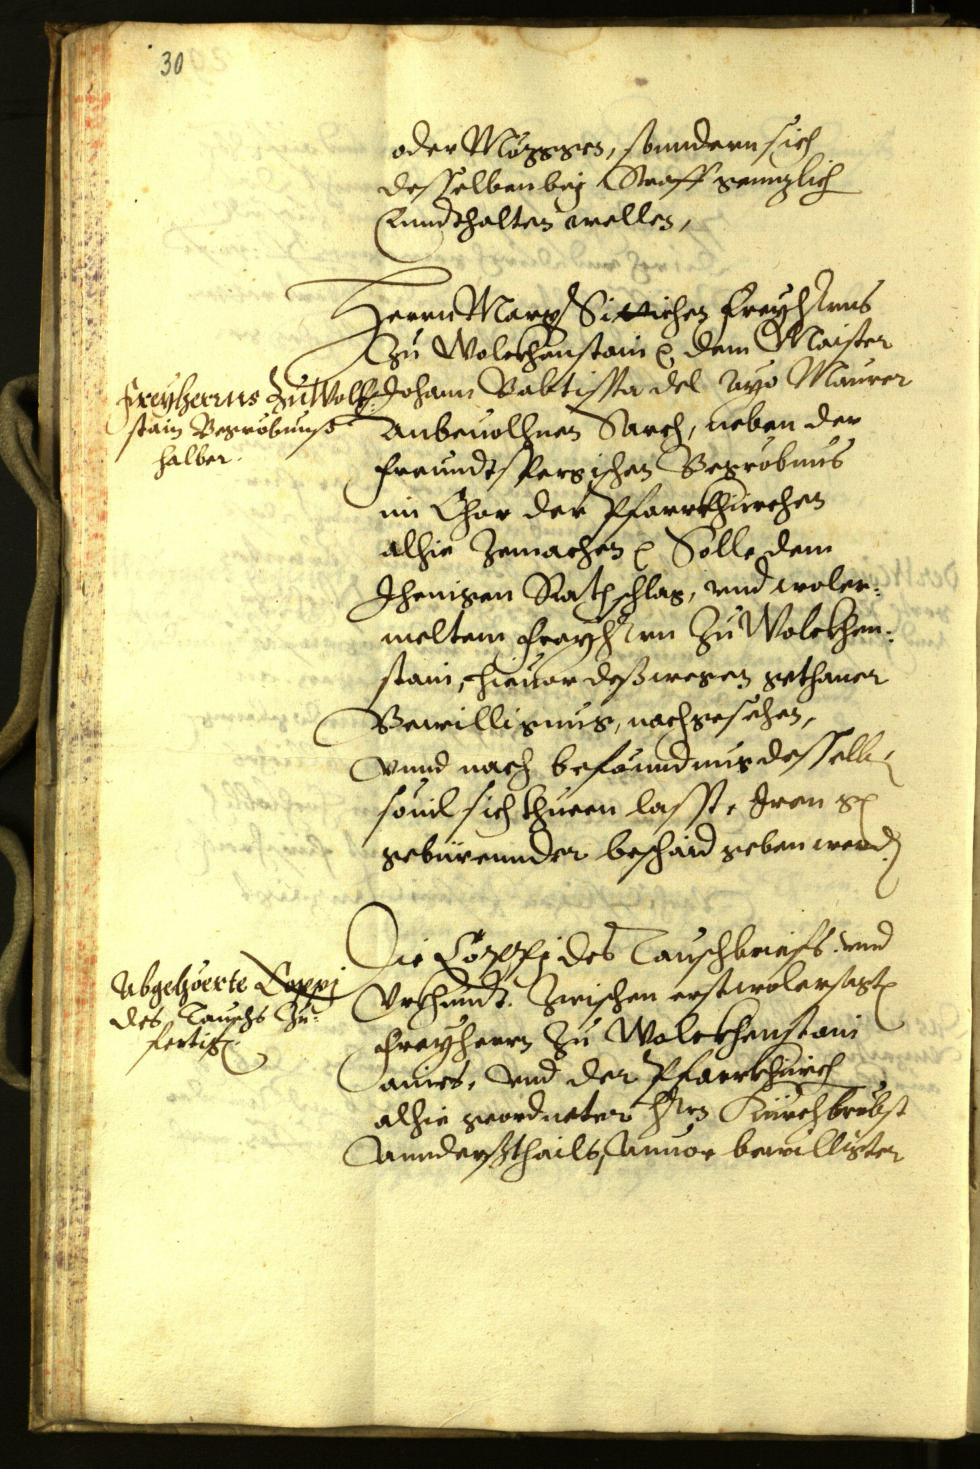 30
oder Mögges, sonndern sich
desselben bej Straff genntzlich
Ennthalten wellen,
Herrn Marx Sittichen Freyherrns
zu Wolckhenstain &c. dem Maister
Johann Babtista del Ayo Maurer
Anbeuolhnen Sarch, neben der
Freundtspergischen Begröbnus
im Chor der Pfarrkhürchen
alhie Zemachen &c. Solle dem
Jhenigen Rathschlag, und woler=
meltem Freyherrn Zu Wolckhen=
stain, hieuor desswegen gethaner
Bewilligung, nachgesehen,
Vnnd nach befünndung desselben
souil sich thuen lasst, Iren g.
gebürennder beschaid geben werden
Freyherrns Zu Wolkh:
stain Begröbnuss
halber.
Die Coppj des Tauschbriefs. vnd
Vrkhundt. Zwischen erstwolersagtem
Freyherrn Zu Wolckhenstain
aines, vnd der Pfarrkhürch
alhie geordneter Herrn Kürchbröbst
Annderssthails, Annuor bewilligter
Abgehöerte Coppj
des Tauschs Zu=
fertig.